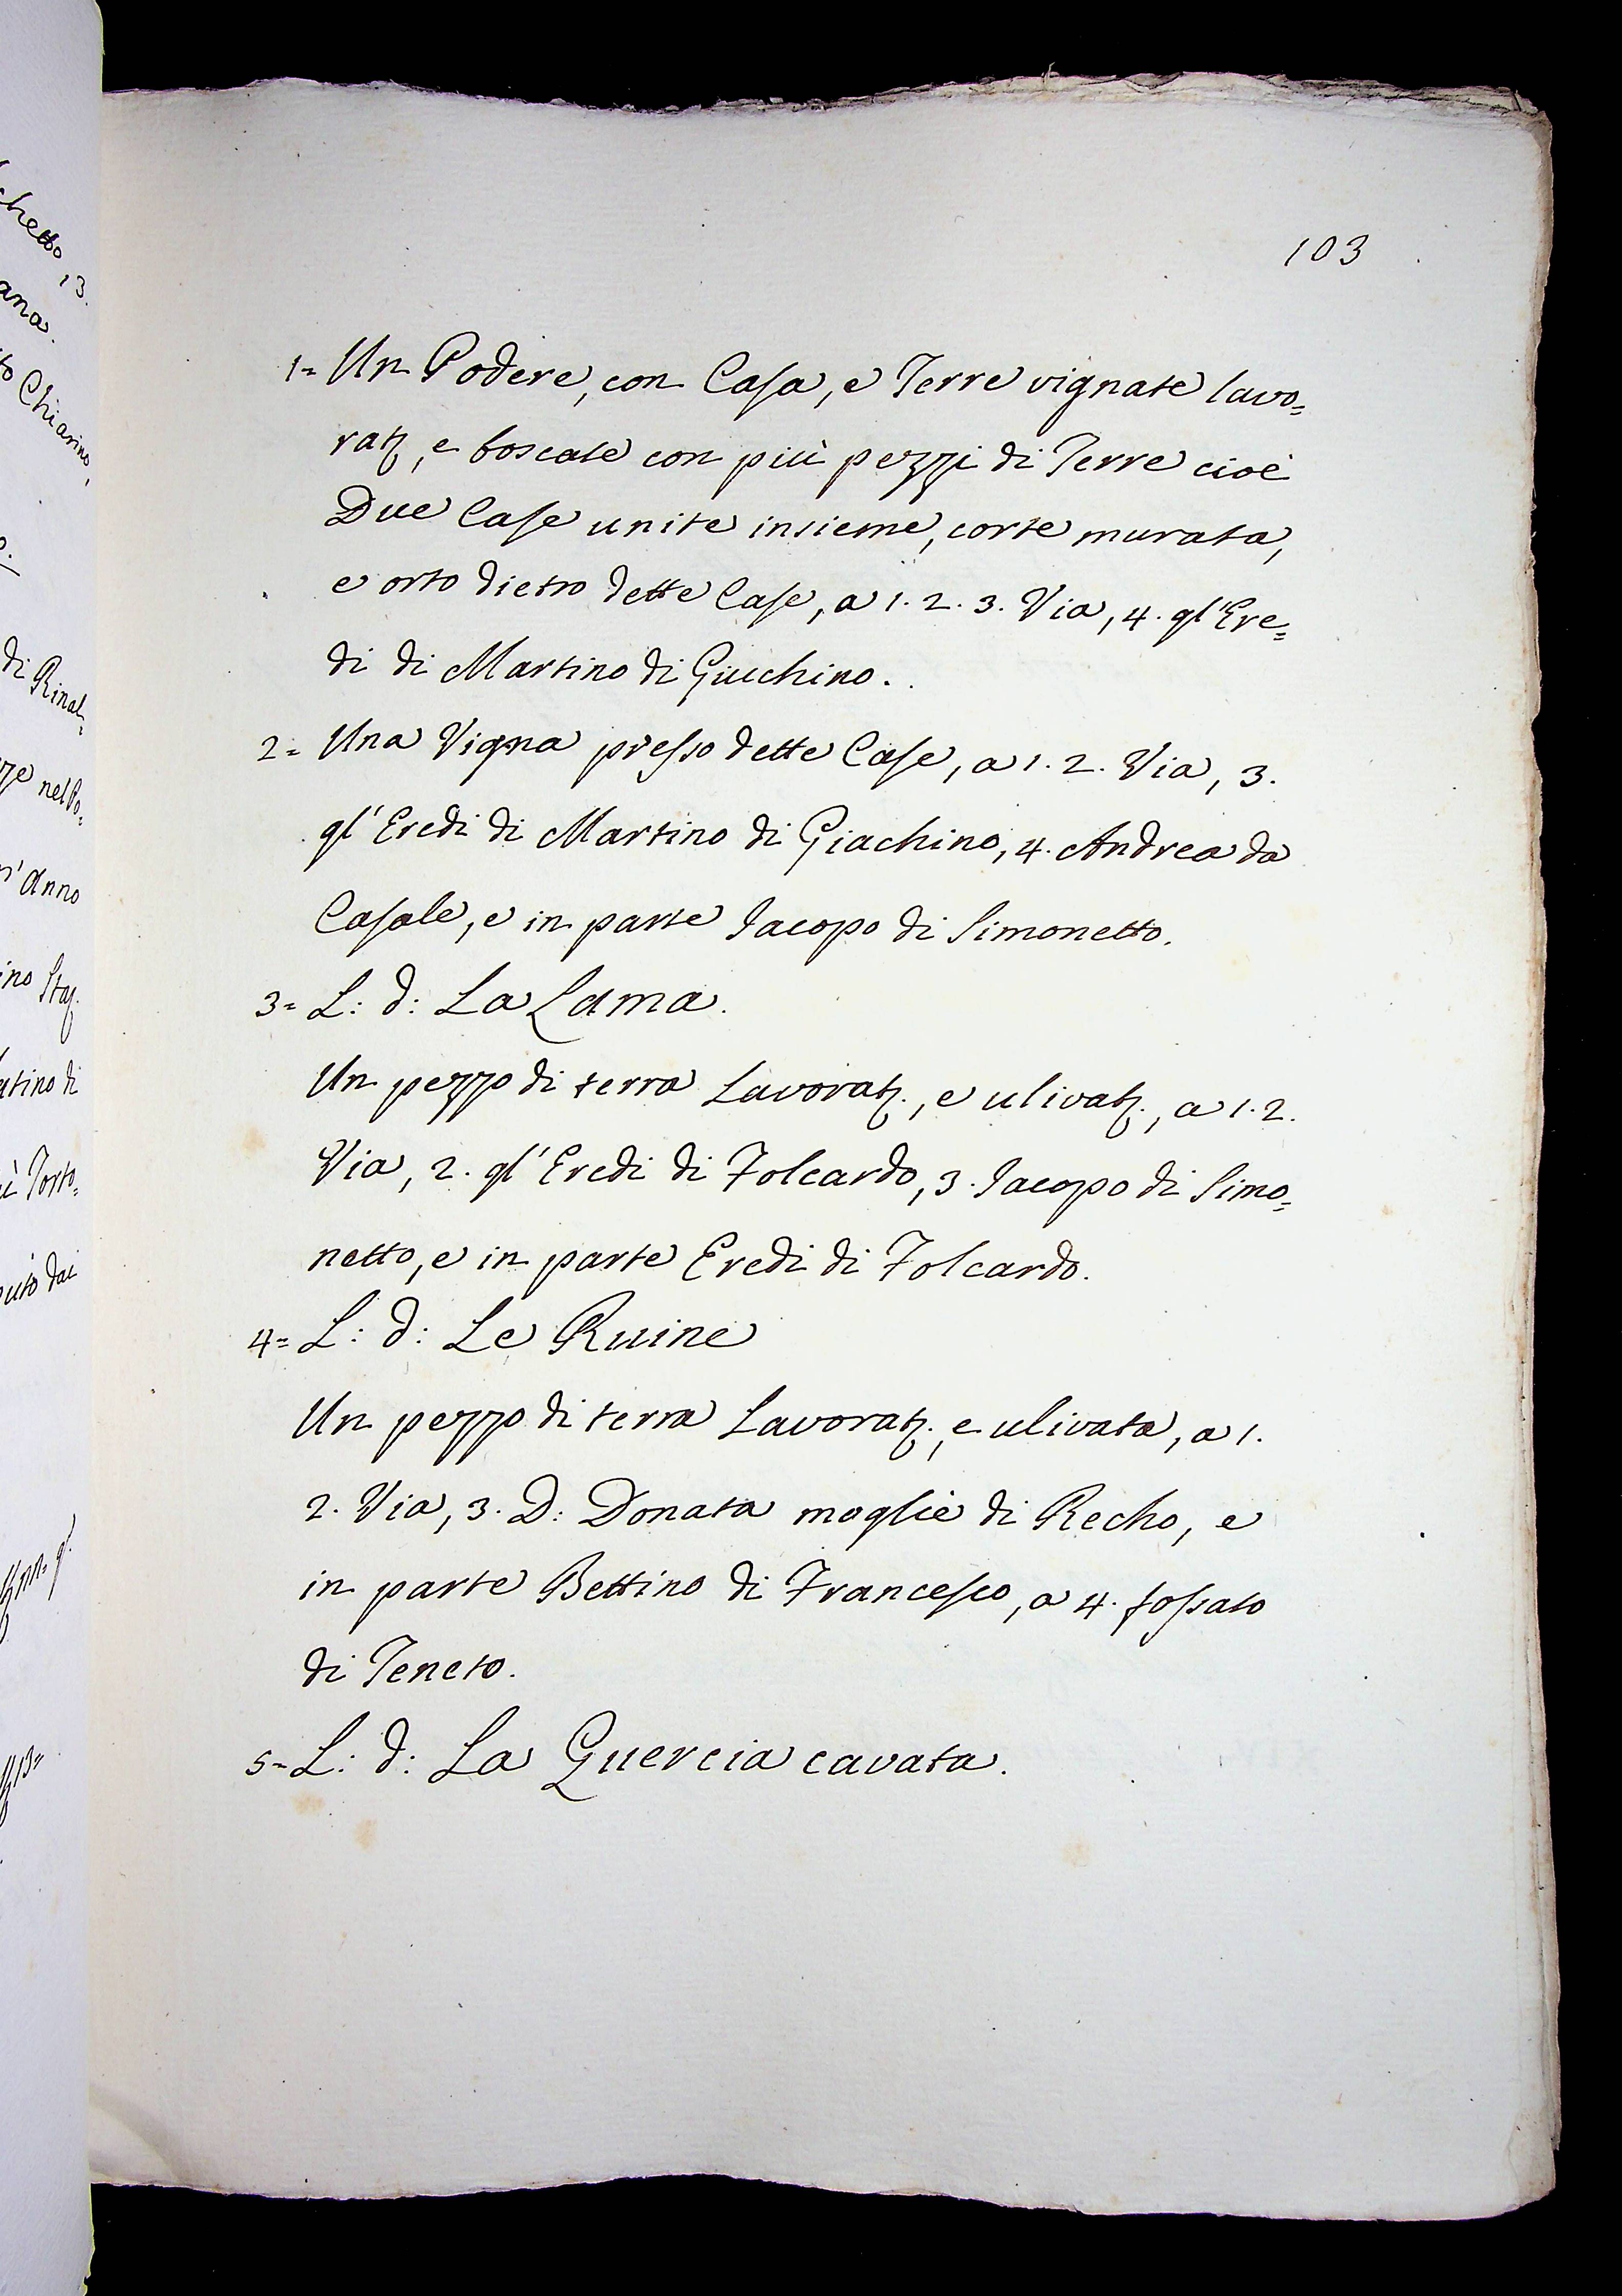 103
1= Un Podere, con Casa, e Terre vignate lavo=
ratz, e boscate con più pezzi di Terre cioè
Due Case unite insieme, corte murata,
e orto dietro dette Case, a 1. 2. 3. Via, 4. gl'Ere=
di di Martino di Giuchino.
2= Una Vigna presso dette Case, a 1. 2. Via, 3.
gl'Eredi di Martino di Giachino, 4. Andrea da
Casale, e in parte Jacopo di Simonetto.
3= L: d: La Lama.
Un pezzo di terra Lavoratz., e ulivatz., a 1. 2.
Via, 2. gl'Eredi di Folcardo, 3. Jacopo di Simo=
netto, e in parte Eredi di Folcardo.
4= L: d: Le Ruine
Un pezzo di terra Lavoratz., e ulivata, a 1.
2. Via, 3. D: Donata moglie di Recho, e
in parte Bettino di Francesco, a 4. fossato
di Teneto.
5= L: d: La Quercia cavata.
chetto, 13.
ana.
to Chiarino,
di Rinal=
nel Po=
Anno
ino
tino di
Torto=
uto dai